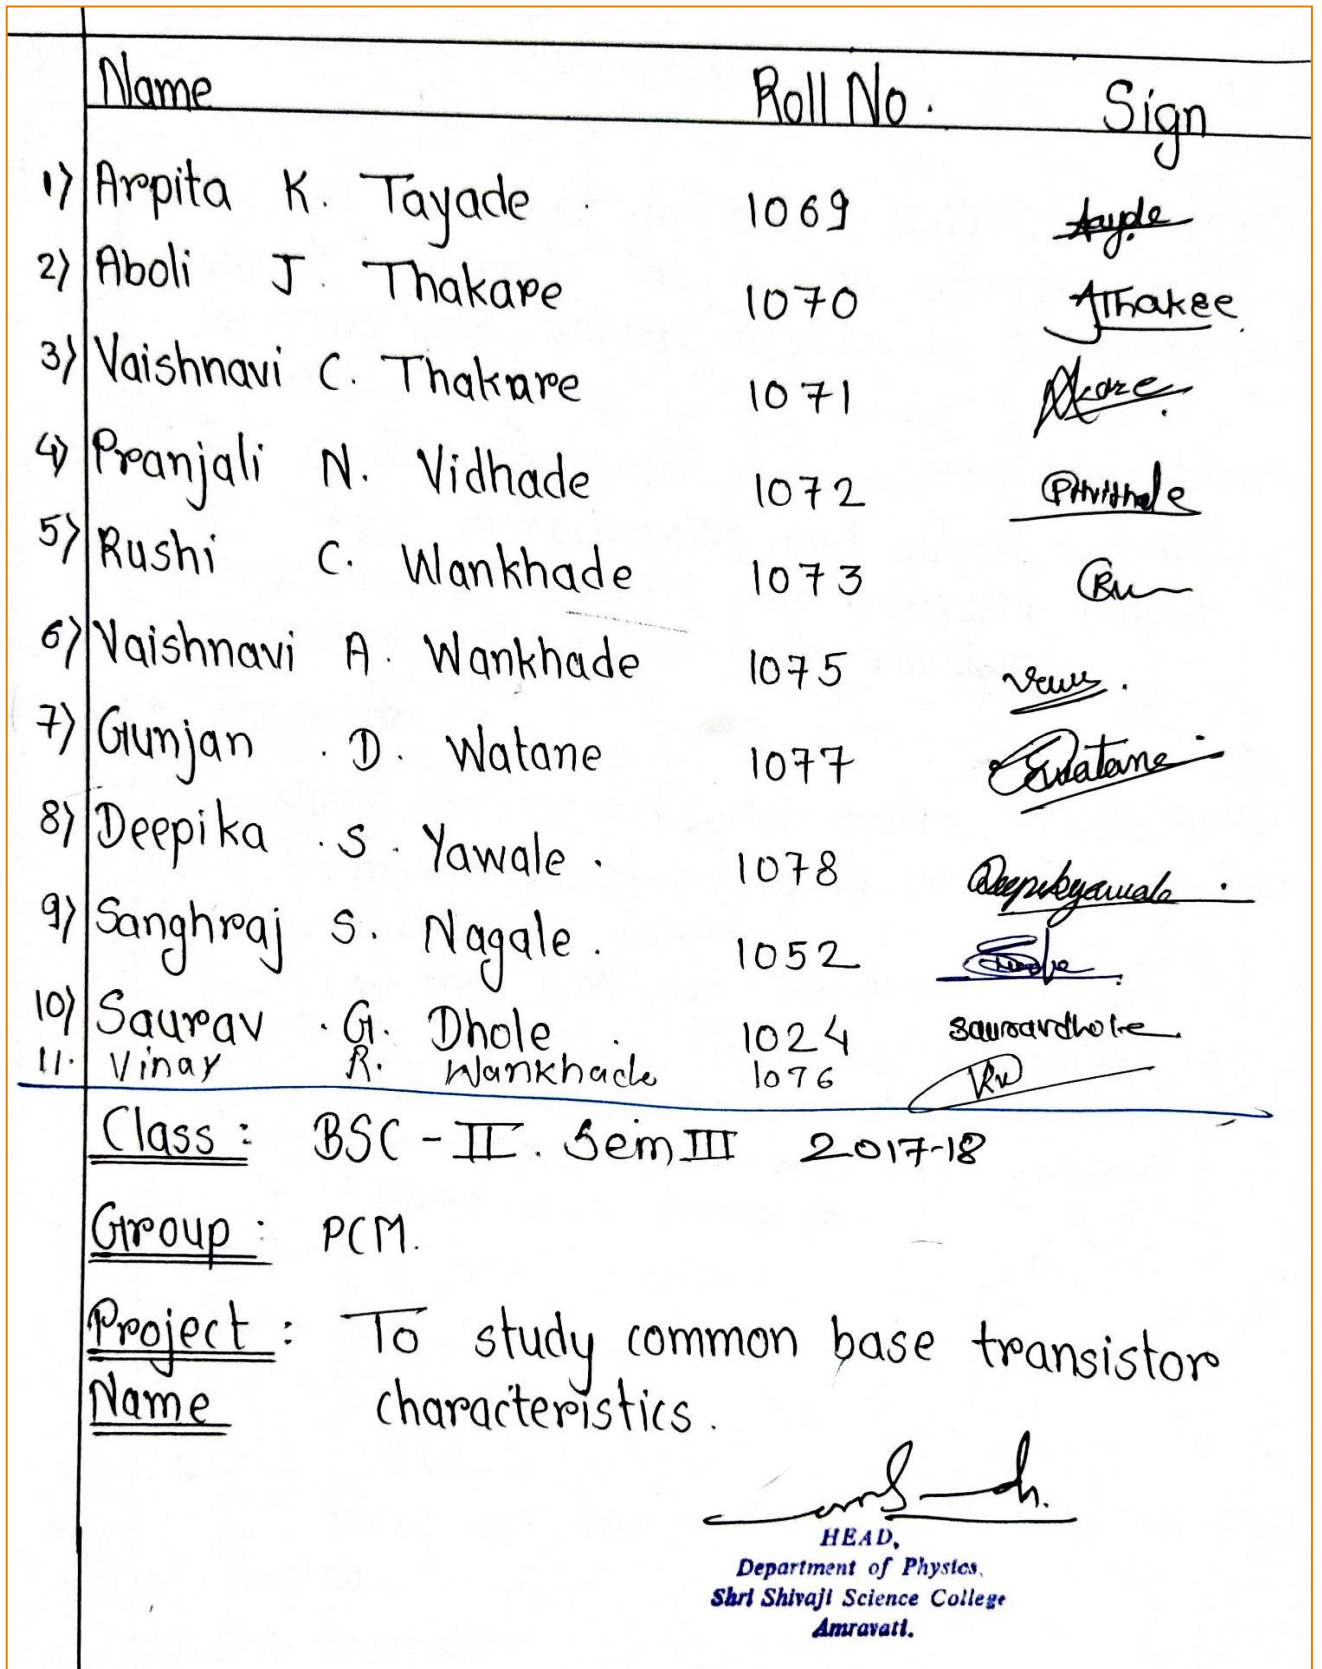 Name Roll No. Sign
1) Arpita K. Tayade 1069 Tayde
2) Aboli J. Thakare 1070 AJThakre
3) Vaishnavi C. Thakare 1071
4) Pranjali N. Vidhade 1072
5) Rushi C. Wankhade 1073
6) Vaishnavi A. Wankhade 1075
7) Gunjan . D. Watane 1077 Gwatane
8) Deepika . S. Yawale . 1078 Deepikayawale .
9) Sanghraj S. Nagale . 1052
10) Saurav . G. Dhole . 1024 Sauravdhole
11. Vinay R. Wankhade 1076
Class : BSC - II. Sem III 2017-18
Group : PCM.
Project : To study common base transistor
Name characteristics.
HEAD,
Department of Physics,
Shri Shivaji Science College
Amravati.